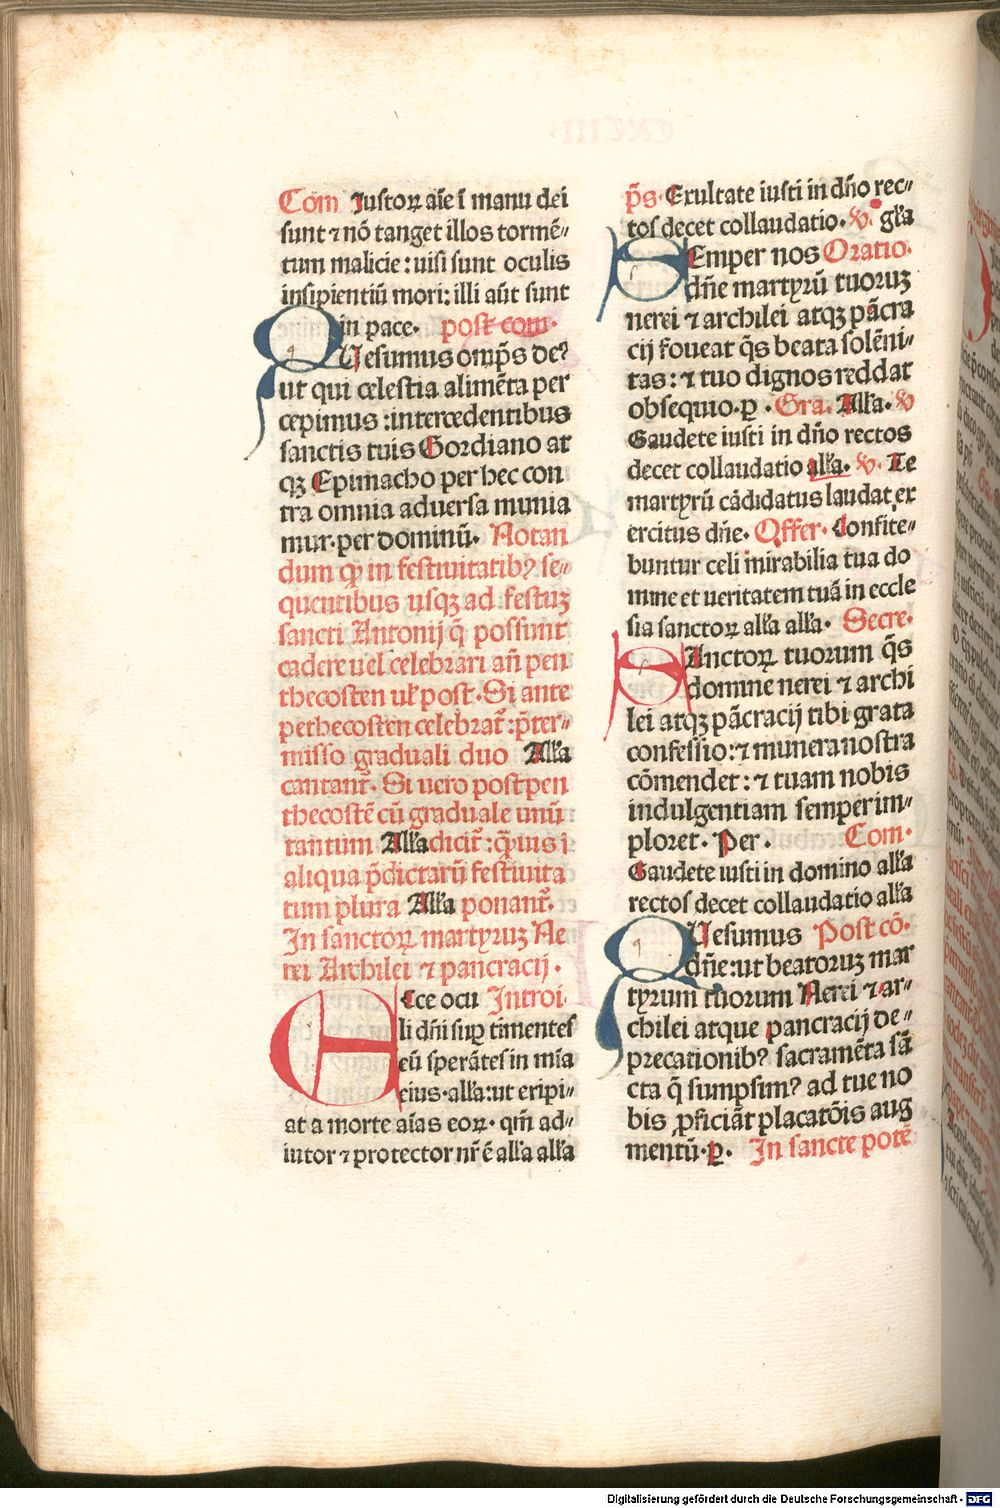 Com Iustoꝝ aīe ī manu dei
sunt ⁊ nō tanget illos tormē⸗
tum malicie : uisi sunt oculis
insipientiū mori: illi aūt sunt
in pace. post com.
Quesumus omp̄s deꝰ
ut qui celestia alimēta per
cepimus :intercedentibus
sanctis tuis Gordiano at
qꝫ Epimacho per hec con
tra omnia aduersa munia
mur. per dominū. Notan
dum ꝙ in festiuitatibꝰ se⸗
quentibus usqꝫ ad festuꝫ
sancti Antonij q̄ possunt
cadere uel celebrari an̄ pen
thecosten uł post. Si ante
pethecosten celebrat̄ : p̄ter⸗
misso graduali duo Alł'a
cantant̄. Si uero post pen
thecostē cū graduale unū
tantum Alł'a dicit̄ : q̄muis ī
aliqua p̄dictarū festiuita
tum plura Alł'a ponant̄.
In sanctoꝝ martyruꝫ Ne
rei Archilei ⁊ pancracij .
Ecce ocu Introi.
li dn̄i suꝑ timentes
eū sperātes in mīa
eius. ałł'a: ut eripi⸗
at a morte aīas eoꝝ. qm̄ ad⸗
iutor ⁊ protector nr̄ ē ałł'a ałł'a
p̄s. Exultate iusti in dn̄o rec⸗
tos decet collaudatio. ℣. gł'a
Semper nos Oratio.
dn̄e martyrū tuoruꝫ
nerei ⁊ archilei atqꝫ pācra
cij foueat q̄s beata solēni⸗
tas: ⁊ tuo dignos reddat
obsequio. ꝑ . Gra. Alł'a. ℣
Gaudete iusti in dn̄o rectos
decet collaudatio ałł'a. ℣. Te
martyrū cādidatus laudat ex
ercitus dn̄e. Offer. Confite⸗
buntur celi mirabilia tua do
mine et ueritatem tuā in eccle
sia sanctoꝝ ałł'a ałł'a. Secre.
Sanctoꝝ tuorum q̄s
domine nerei ⁊ archi
lei atqꝫ pācracij tibi grata
confessio: ⁊ munera nostra
cōmendet: ⁊ tuam nobis
indulgentiam semper im⸗
ploret. Per. Com.
Gaudete iusti in domino ałł'a
rectos decet collaudatio ałł'a
Quesumus Post cō.
dn̄e: ut beatoruꝫ mar
tyrum tuorum Nerei ⁊ ar⸗
chilei atque pancracij de⸗
precationibꝰ sacramēta sā
cta q̄ sumpsimꝰ ad tue no
bis ꝓficiāt placatōis aug
mentū. ꝑ. In sancte potē
Digitalisierung gefördert durch die Deutsche Forschungsgemeinschaft - DFG